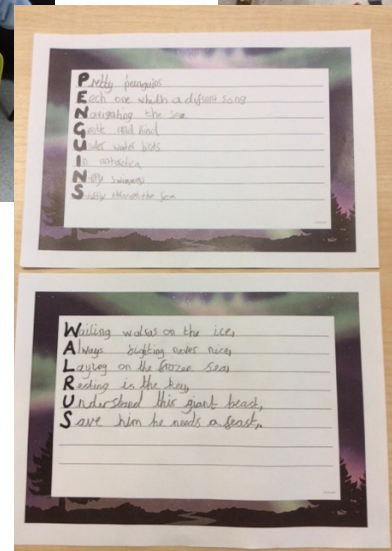 Pretty penguins
Each one with a diffrent song
Navigating the sea
Gentle and kind
Under water birds
In antartica
Nippy swimmers
Swiftly through the sea
Wailing walus on the ice,
Always bigtting never nice,
Laying on the frozee sea,
Resting is the key,
Understand this giant beast,
Save him he needs a feast,